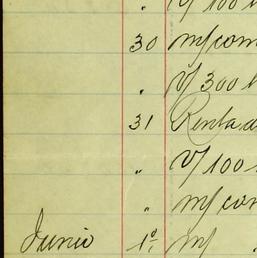 " v/ 100
30 m/com
" v/ 300
31 Renta
" v/ 100
" m/con
Junio 1º m/